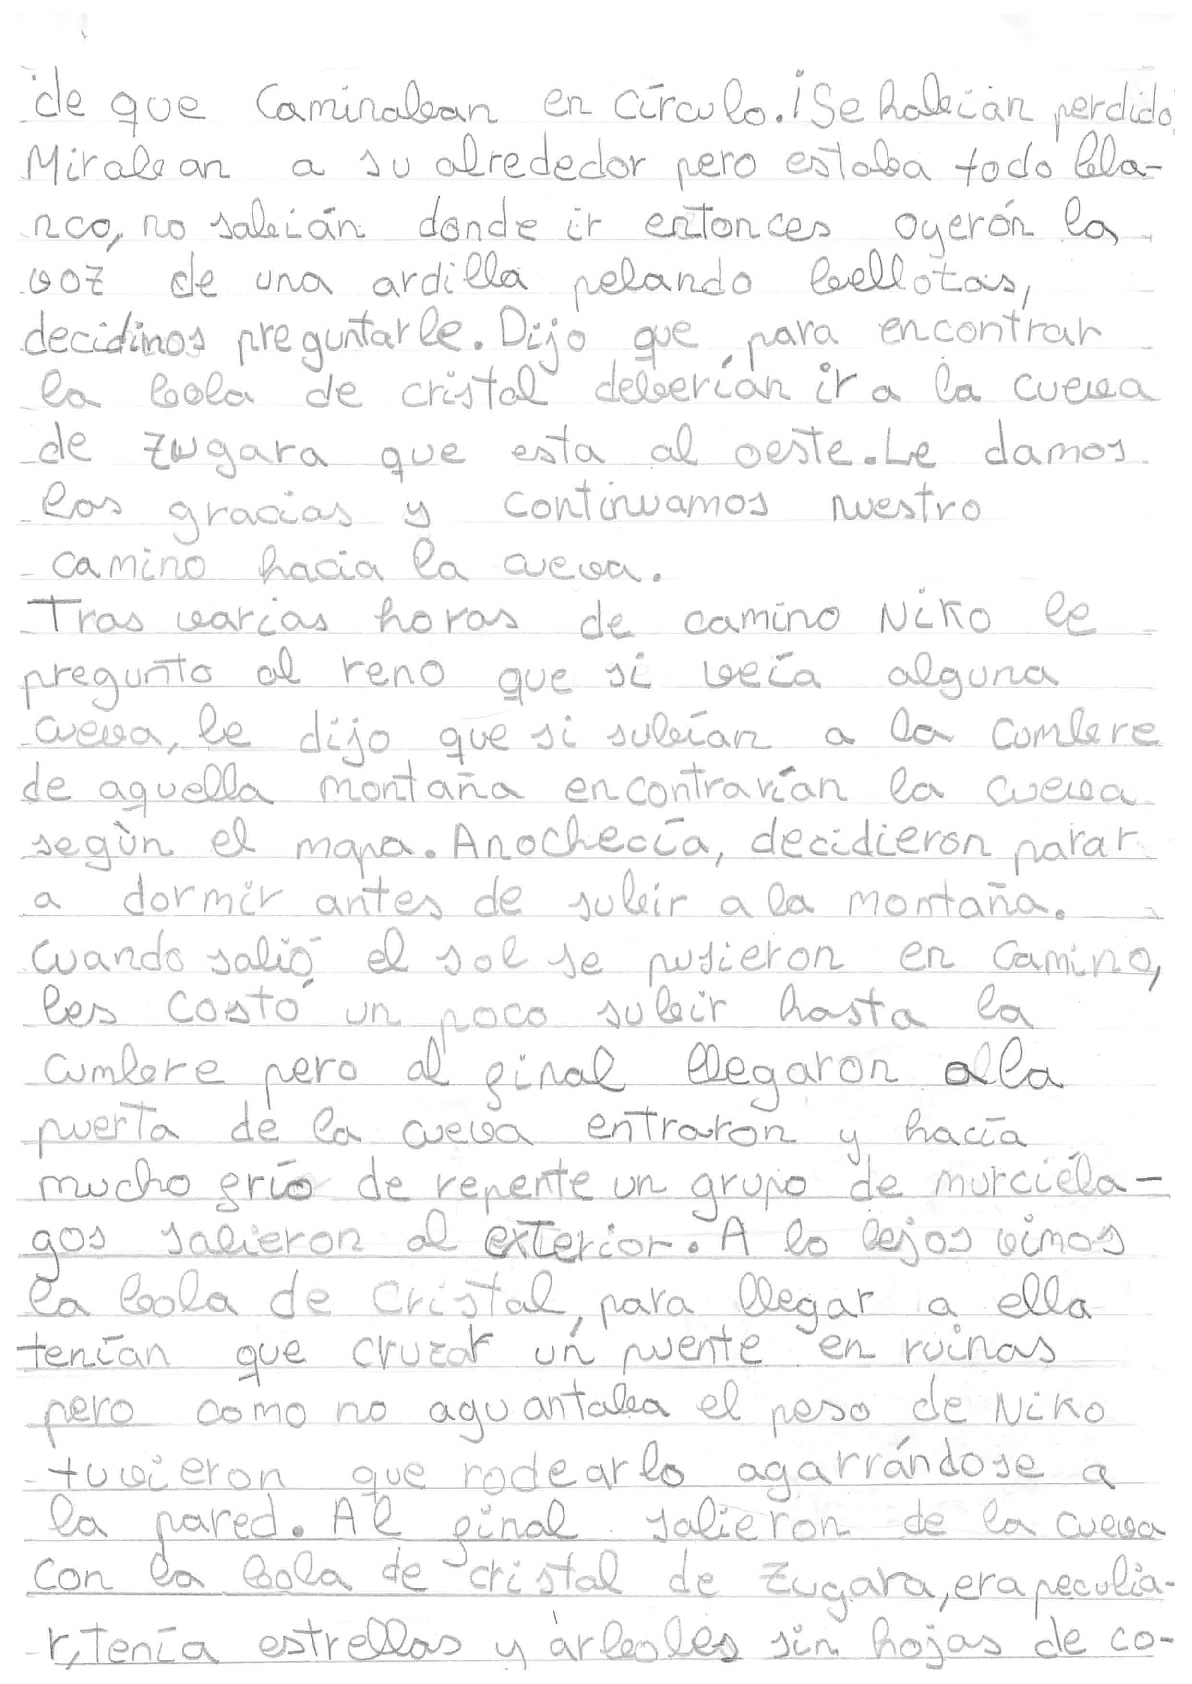 de que Caminaban en círculo. ¡Se habían perdido
Miraban a su alrededor pero estaba todo bla-
nco, no sabían donde ir entonces oyerón la
voz de una ardilla pelando bellotas,
decidimos preguntarle. Dijo que para encontrar
la bola de cristal deberían ir a la cueva
de Zugara que esta al oeste. Le damos
las gracias y continuamos nuestro
camino hacia la cueva.
Tras varias horas de camino Niko le
pregunto al reno que si veía alguna
cueva, le dijo que si subían a la cumbre
de aquella montaña encontrarían la cueva
según el mapa. Anochecía, decidieron parar
a dormir antes de subir a la montaña.
Cuando salió el sol se pusieron en camino,
les costó un poco subir hasta la
cumbre pero al final llegaron a la
puerta de la cueva entraron y hacía
mucho frío de repente un grupo de murciéla-
gos salieron al exterior. A lo lejos vimos
la bola de cristal, para llegar a ella
tenían que cruzar un puente en ruinas
pero como no aguantaba el peso de Niko
tuvieron que rodearlo agarrándose a
la pared. Al final salieron de la cueva
con la bola de cristal de Zugara, era peculia-
r, tenía estrellas y árboles sin hojas de co-